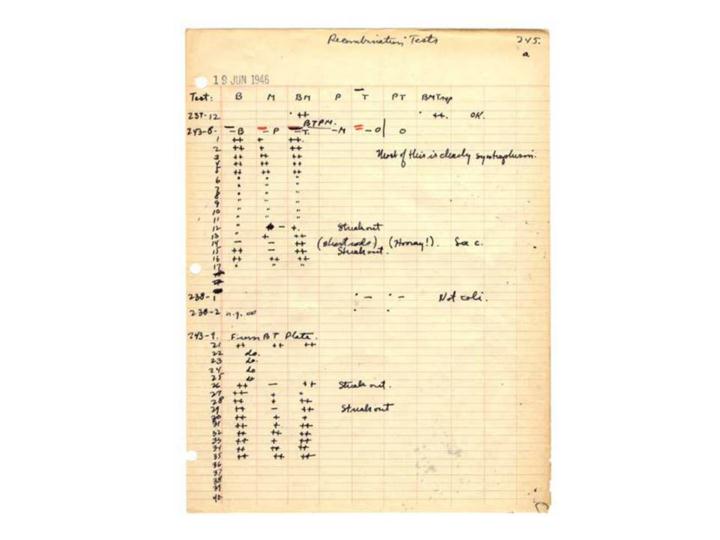 Recombination Tests 245.
a
19 JUN 1946
Test: B M BM P T PT BMTrop
237-12 ++ ++. OK.
BTPM.
243-8- -B -P -T. -M -O O
1 ++ + ++
2 ++ + ++ Most of this is clearly syntrophism.
3 ++ ++ ++
4 ++ ++ ++
5 ++ ++ ++
6 " " "
7 " " "
8 " " "
9 " " "
10 " " "
11 " "
12 " - +. Streak out
13 " + ++
14 - - ++ (short rods) (Hooray!). See c.
15 ++ - ++ Streak out.
16 ++ ++ ++
17
238-1 - - Not coli.
238-2 n.g.
243-9. From BT Plate.
21 ++ ++ ++
22 do.
23 do.
24 do
25 do
26 ++ - ++ Streak out.
27 ++ +
28 ++ + ++
29 ++ - ++ Streak out
30 ++ + +
31 ++ + ++
32 ++ ++ ++
33 ++ + ++
34 ++ ++ ++
35 ++ ++ ++
36
37
38
39
40